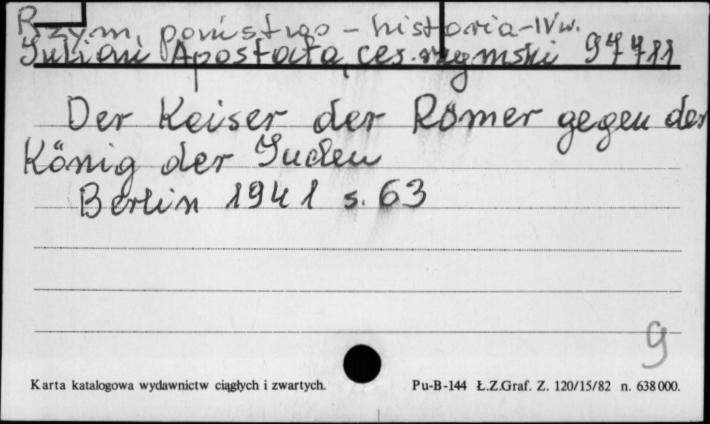 Rzym, państwo - historia - IV w.
Juliani Apostata, ces. rzymski 97711
Der Keiser der Römer gegen der
König der Juden
Berlin 1941 s. 63
9
Karta katalogowa wydawnictw ciągłych i zwartych.
Pu-B-144 Ł.Z.Graf. Z. 120/15/82 n. 638000.